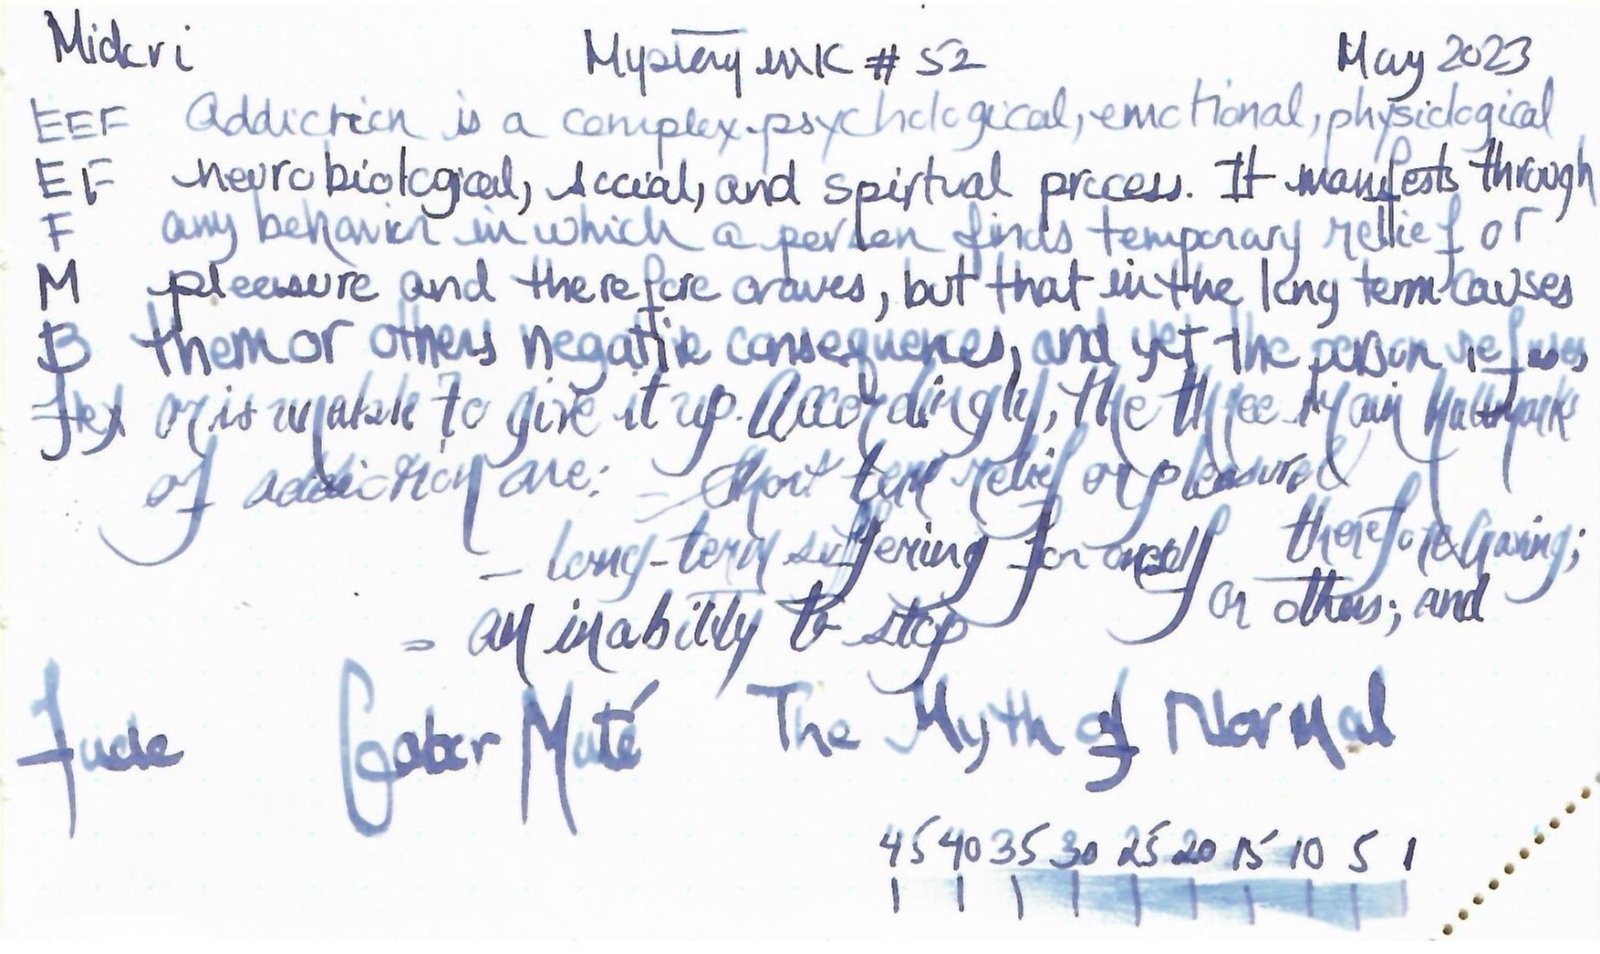 Midori Mystery ink # 52 May 2023
EEF Addiction is a complex psychological, emotional, physiological
EF neurobiological, social, and spirtual process. It manifests through
F any behavior in which a person finds temporary relief or
M pleasure and therefore craves, but that in the long term causes
B them or others negative consequences, and yet the person refuses
flex or is unable to give it up. Accordingly, the three main hallmarks
of addiction are: - short term relief or pleasure
therefore craving;
- long-term suffering for oneself
or others; and
- an inability to stop
Fude Gabor Maté The Myth of Normal
45 40 35 30 25 20 15 10 5 1